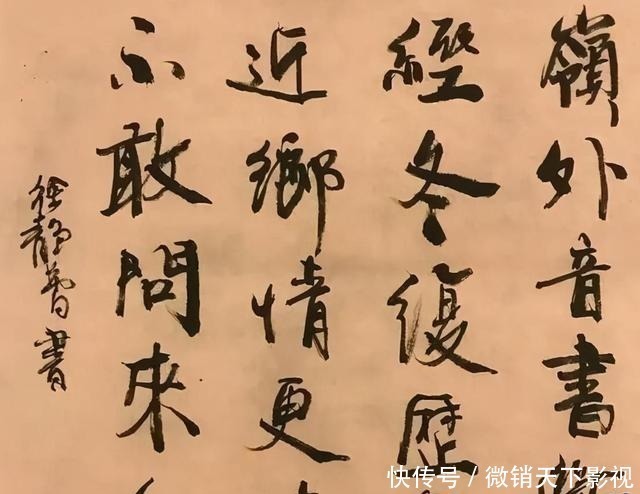 嶺外音書
經冬復歷
近鄉情更
不敢問來
徐静蕾書
快传号／微销天下影视